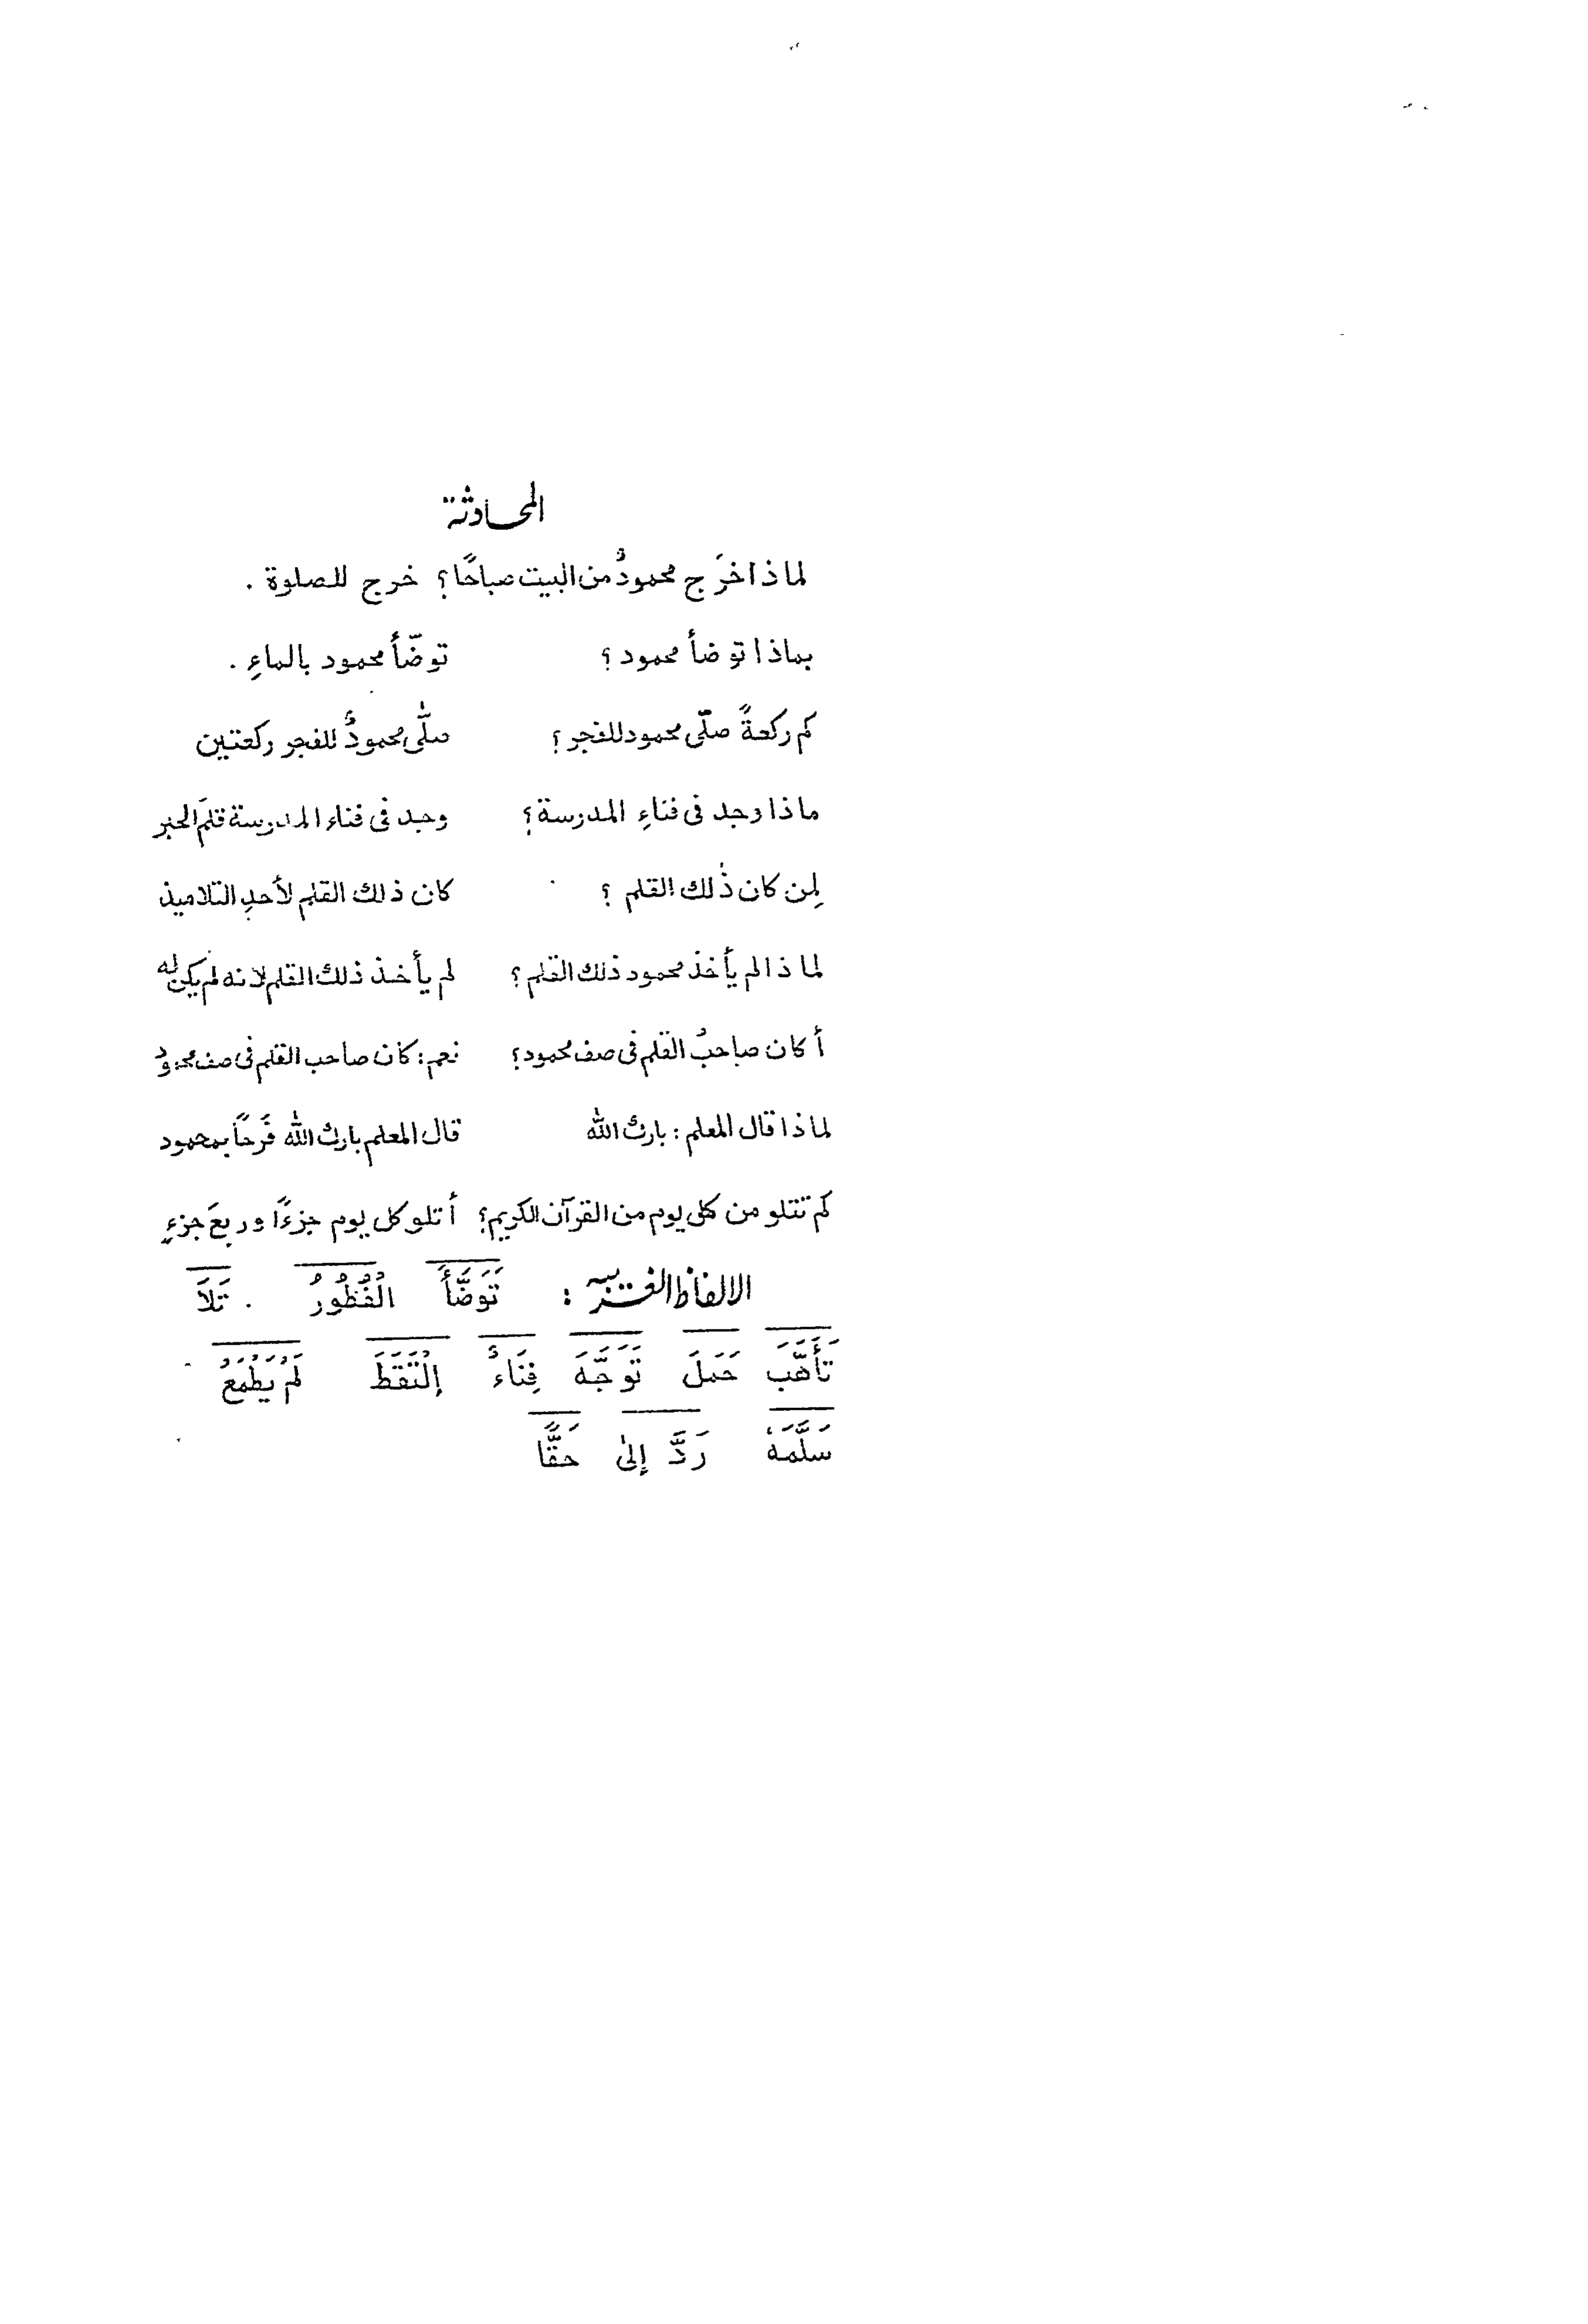 المحادثة
لماذا خرَج محمودٌ من البيت صباحًا؟ خرج للصلوة .
بماذا توضأ محمود؟ توضّأ محمود بالماءِ .
كم ركعةً صلّى محمود للفجر؟ صلّٰى محمودٌ للفجر ركعتين
ماذا وجد فى فناءِ المدرسة؟ وجد فى فناء المدرسة قلمَ الحبر
لِمن كان ذٰلك القلم ؟ كان ذلك القلم لأحدِ التلاميذ
لماذا لم يأخذ محمود ذلك القلم؟ لم يأخذ ذلك القلم لانه لم يكن له
أكان صاحبُ القلم فى صف محمود؟ نعم: كان صاحب القلم فى صف محمود
لماذا قال المعلم: بارك الله قال المعلم بارك الله فَرحًا بمحمود
كم تتلو من كل يوم من القرآن الكريم؟ أتلو كل يوم جزءًا وربعَ جزءٍ
الالفاظ الغريبه : تَوَضَّأَ الْفُطُورُ . تَلاَ
تَأَهَّبَ حَمَلَ تَوَجَّهَ فِنَاءٌ إِلْتَقَطَ لَمْ يَطْمَعْ
سَلَّمَهٗ رَدَّ إِلىٰ حَقًّا